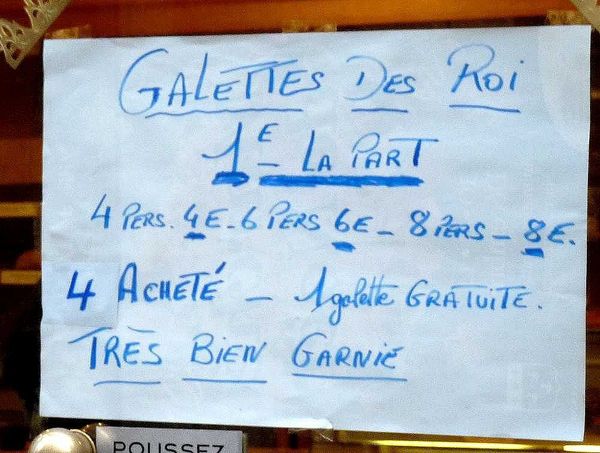 GALETTES DES ROI
1E - LA PART
4 PERS. 4E - 6 PERS 6E - 8 PERS - 8E.
4 ACHETÉ - 1 galette GRATUITE.
TRÈS BIEN GARNIE
POUSSEZ